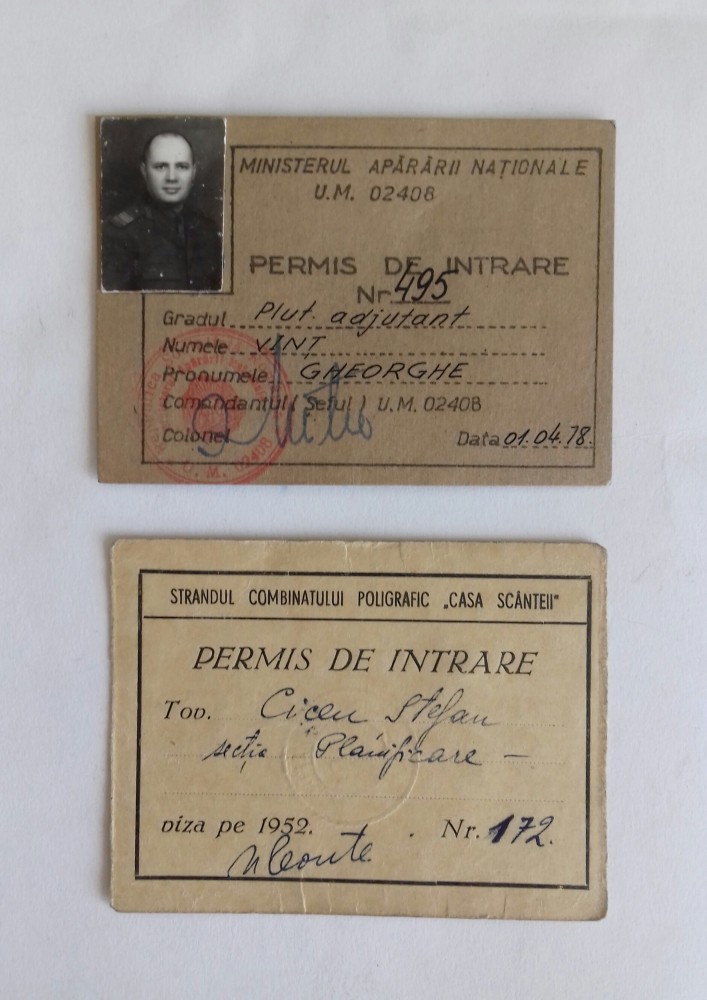 MINISTERUL APĂRĂRII NAȚIONALE
U.M. 02408
PERMIS DE INTRARE
Nr. 495
Gradul Plut. adjutant
Numele VINȚ
Pronumele GHEORGHE
Comandantul (Șeful) U.M. 02408
Colonel
Data 01.04.78.
U. M. 02408
STRANDUL COMBINATULUI POLIGRAFIC „CASA SCÂNTEII"
PERMIS DE INTRARE
Tov. Ciceu Stefan
secția Planificare –
viza pe 1952.
Nr. 172.